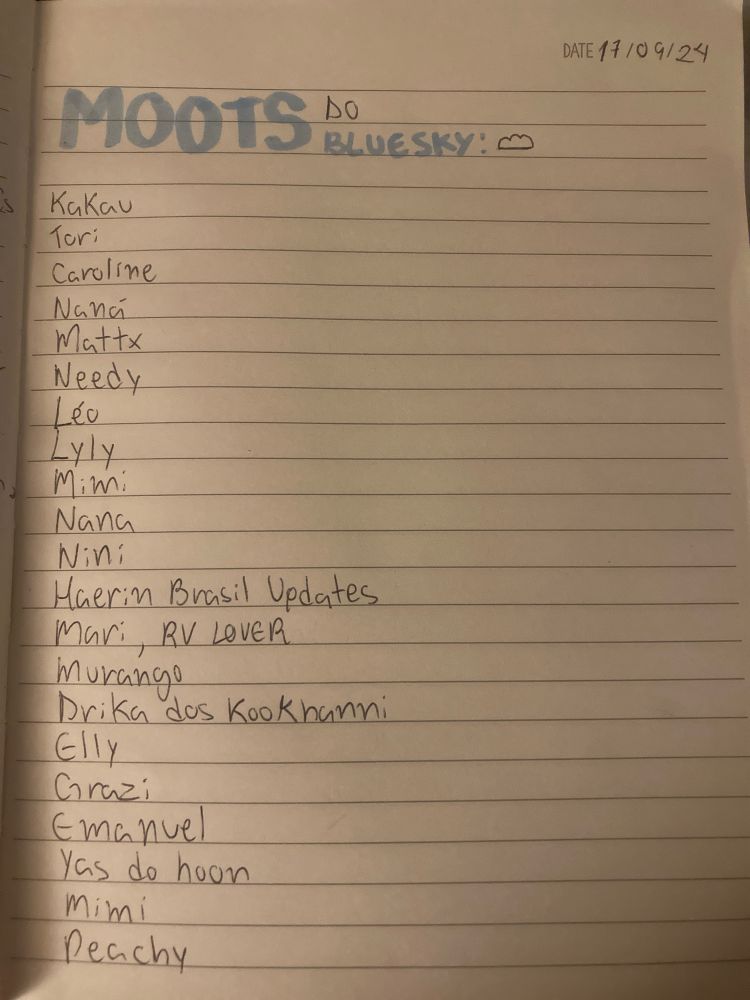 DATE 17/09/24
MOOTS DO
BLUESKY:
Kakau
Tori
Caroline
Naná
Mattx
Needy
Léo
Lyly
Mimi
Nana
Nini
Haerin Brasil Updates
Mari, RV LOVER
Murango
Drika dos Kookhanni
Elly
Grazi
Emanuel
Yas do hoon
Mimi
Peachy